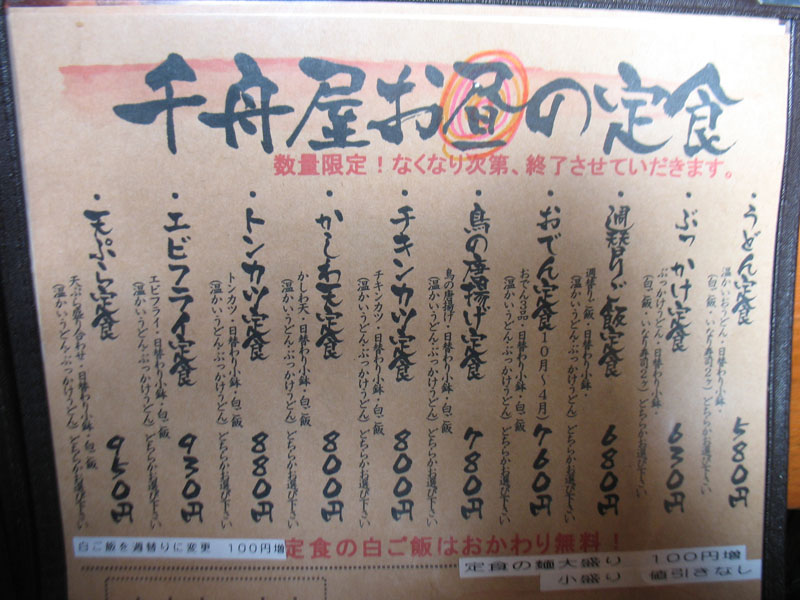 千舟屋お昼の定食
数量限定！なくなり次第、終了させていだきます。
・うどん定食
温かいおうどん・日替わり小鉢・
（白ご飯・いなり寿司2ケ）どちらかお選び下さい
580円
・ぶっかけ定食
ぶっかけうどん・日替わり小鉢・
（白ご飯・いなり寿司2ケ）どちらかお選び下さい
630円
・週替りご飯定食
週替りご飯・日替わり小鉢・
（温かいうどん・ぶっかけうどん）どちらかお選び下さい
680円
・おでん定食（10月〜4月）
おでん3品・日替わり小鉢・白ご飯
（温かいうどん・ぶっかけうどん）どちらかお選び下さい
760円
・鳥の唐揚げ定食
鳥の唐揚げ・日替わり小鉢・白ご飯
（温かいうどん・ぶっかけうどん）どちらかお選び下さい
780円
・チキンカツ定食
チキンカツ・日替わり小鉢・白ご飯
（温かいうどん・ぶっかけうどん）どちらかお選び下さい
800円
・かしわ天定食
かしわ天・日替わり小鉢・白ご飯
（温かいうどん・ぶっかけうどん）どちらかお選び下さい
800円
・トンカツ定食
トンカツ・日替わり小鉢・白ご飯
（温かいうどん・ぶっかけうどん）どちらかお選び下さい
880円
・エビフライ定食
エビフライ・日替わり小鉢・白ご飯
（温かいうどん・ぶっかけうどん）どちらかお選び下さい
930円
・天ぷら定食
天ぷら盛り合わせ・日替わり小鉢・白ご飯
（温かいうどん・ぶっかけうどん）どちらかお選び下さい
950円
白ご飯を週替りに変更 100円増
定食の白ご飯はおかわり無料！
定食の麺大盛り 100円増
小盛り 値引きなし